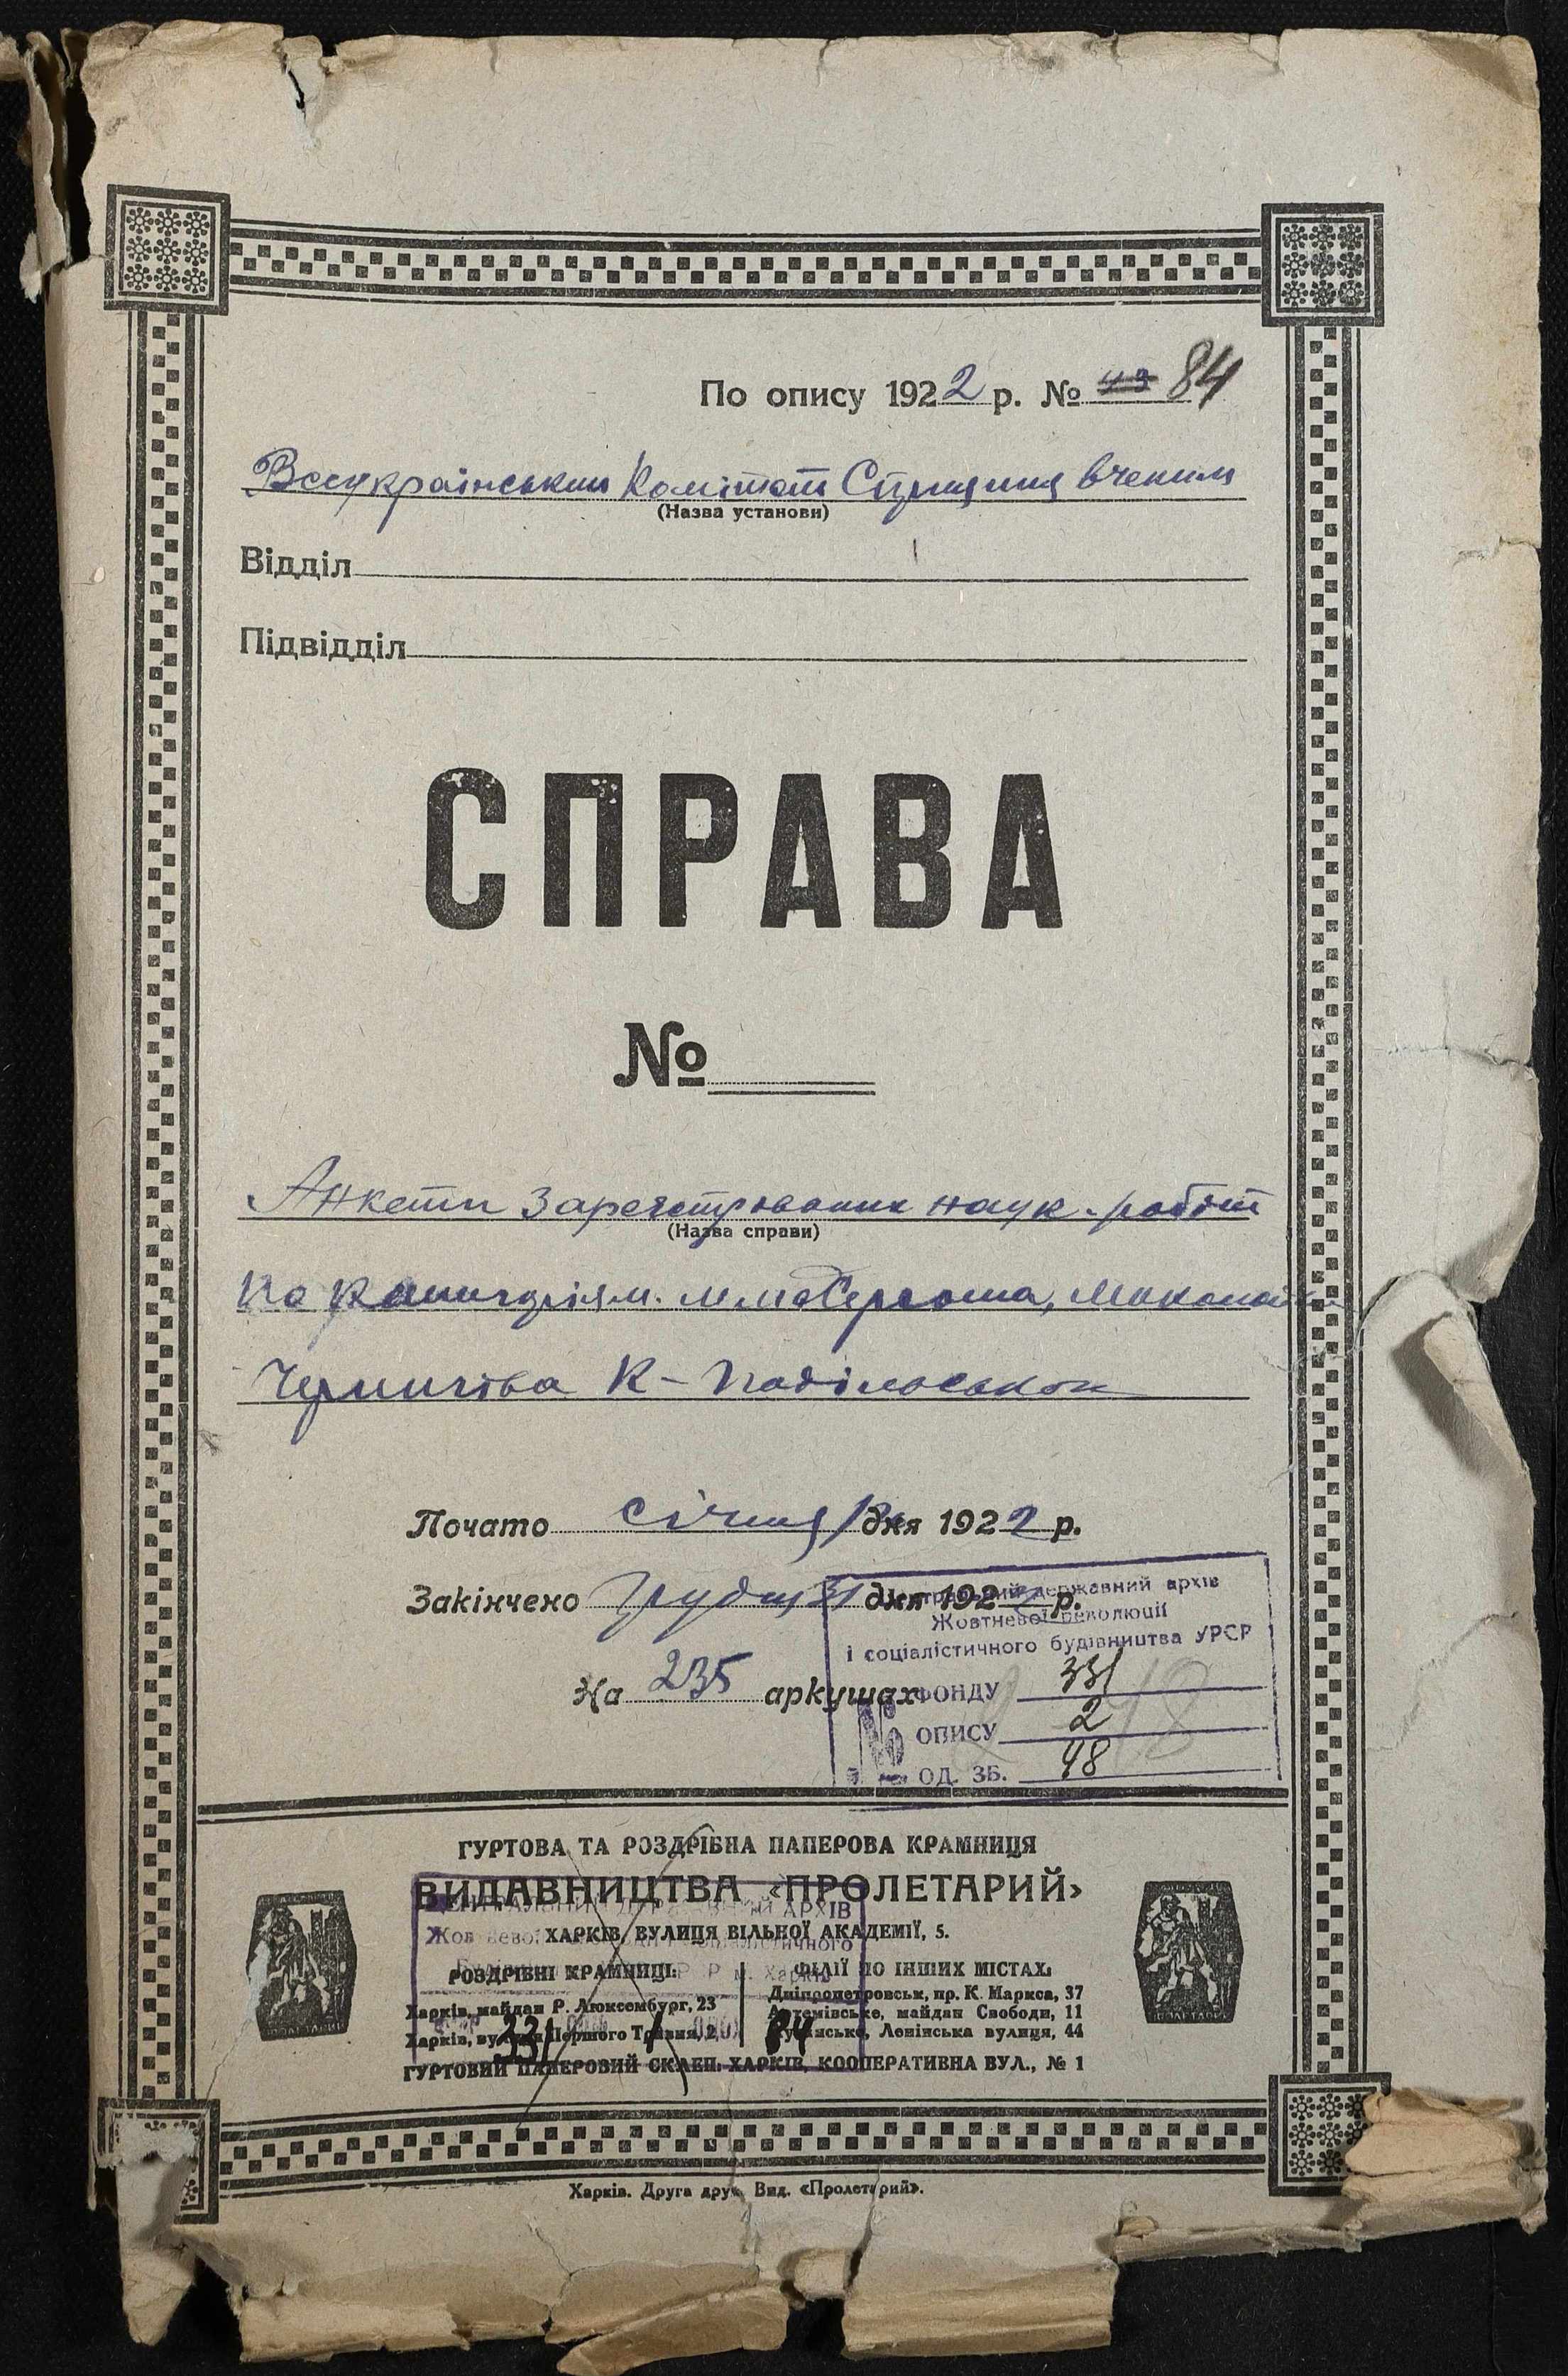 По опису 1922 р. № 49 84
Всеукраїнський Комітет Сприяння вченим
(Назва установи)
Відділ
Підвідділ
СПРАВА
№
Анкети зареєстрованих наук. робіт
(Назва справи)
по м.м. Херсона, Миколаїв
Чернигова К-Подільськом
Почато січня 1 дня 1922 р.
Закінчено Грудня 31 дня 1922 р.
На 235 аркушах
Центральний державний архів
Жовтневої революції
і соціалістичного будівництва УРСР
№ ФОНДУ 331
ОПИСУ 2
ОД. ЗБ. 48
2 48
ГУРТОВА ТА РОЗДРІБНА ПАПЕРОВА КРАМНИЦЯ
ВИДАВНИЦТВА «ПРОЛЕТАРИЙ»
АРХІВ
ХАРКІВ, ВУЛИЦЯ ВІЛЬНОЇ АКАДЕМІЇ, 5.
РОЗДРІБНІ КРАМНИЦІ:
Харків, майдан Р. Люксембург, 23
Харків, вулиця Першого Травня, 2
ФІЛІЇ ПО ІНШИХ МІСТАХ:
Дніпропетровськ, пр. К. Маркса, 37
Артемівське, майдан Свободи, 11
Луганське, Ленінська вулиця, 44
331 1 84
ГУРТОВИЙ ПАПЕРОВИЙ СКЛЕП: ХАРКІВ, КООПЕРАТИВНА ВУЛ., № 1
Харків. Друга друк. Вид. «Пролетарий».